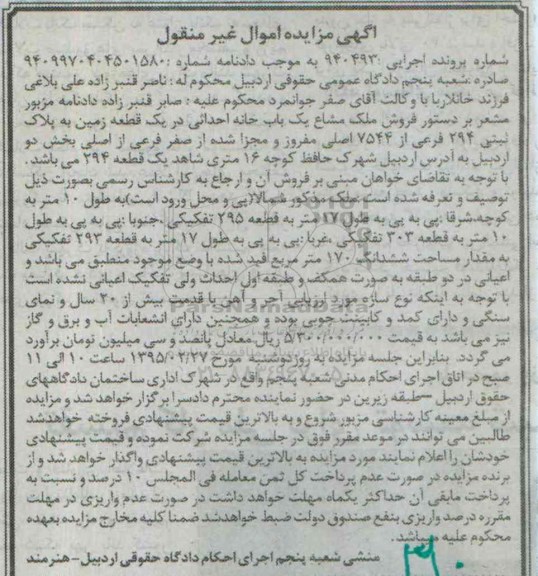 آگهی مزایده اموال غیر منقول
شماره پرونده اجرایی :۹۴۰۴۹۳ به موجب دادنامه شماره :۹۴۰۹۹۷۰۴۰۴۵۰۱۵۸۰
صادره :شعبه پنجم دادگاه عمومی حقوقی اردبیل محکوم له : ناصر قنبر زاده علی بلاغی
فرزند خانلاربا با وکالت آقای صفر جوانمرد محکوم علیه : صابر قنبر زاده دادنامه مزبور
مشعر بر دستور فروش ملک مشاع یک باب خانه احداثی در یک قطعه زمین به پلاک
ثبتی ۲۹۴ فرعی از ۷۵۴۴ اصلی مفروز و مجزا شده از صفر فرعی از اصلی بخش دو
اردبیل به آدرس اردبیل شهرک حافظ کوچه ۱۶ متری شاهد یک قطعه ۲۹۴ می باشد .
با توجه به تقاضای خواهان مبنی بر فروش آن و ارجاع به کارشناس رسمی بصورت ذیل
توصیف و تعرفه شده است :ملک مذکور شمالا(پی و محل ورود است)به طول ۱۰ متر به
کوچه.شرقا :پی به پی به طول ۱۷ متر به قطعه ۲۹۵ تفکیکی .جنوبا :پی به پی به طول
۱۰ متر به قطعه ۳۰۳ تفکیکی .غربا :پی به پی به طول ۱۷ متر به قطعه ۲۹۳ تفکیکی
به مقدار مساحت ششدانگ ۱۷۰ متر مربع قید شده با وضع موجود منطبق می باشد و
اعیانی در دو طبقه به صورت همکف و طبقه اول احداث ولی تفکیک اعیانی نشده است
با توجه به اینکه نوع سازه مورد ارزیابی آجر و آهن با قدمت بیش از ۲۰ سال و نمای
سنگی و دارای کمد و کابینت چوبی بوده و همچنین دارای انشعابات آب و برق و گاز
نیز می باشد به قیمت ۵/۳۰۰/۰۰۰/۰۰۰ ریال معادل پانصد و سی میلیون تومان برآورد
می گردد. بنابراین جلسه مزایده در روز دوشنبه مورخ ۱۳۹۵/۰۲/۲۷ ساعت ۱۰ الی ۱۱
صبح در اتاق اجرای احکام مدنی شعبه پنجم واقع در شهرک اداری ساختمان دادگاههای
حقوق اردبیل –طبقه زیرین در حضور نماینده محترم دادسرا برگزار خواهد شد و مزایده
از مبلغ معینه کارشناسی مزبور شروع و به بالاترین قیمت پیشنهادی فروخته خواهدشد
طالبین می توانند در موعد مقرر فوق در جلسه مزایده شرکت نموده و قیمت پیشنهادی
خودشان را اعلام نمایند مورد مزایده به بالاترین قیمت پیشنهادی واگذار خواهد شد و از
برنده مزایده در صورت عدم پرداخت کل ثمن معامله فی المجلس ۱۰ درصد و نسبت به
پرداخت مابقی آن حداکثر یکماه مهلت خواهد داشت در صورت عدم واریزی در مهلت
مقرره درصد واریزی بنفع صندوق دولت ضبط خواهدشد ضمنا کلیه مخارج مزایده بعهده
محکوم علیه میباشد .
منشی شعبه پنجم اجرای احکام دادگاه حقوقی اردبیل – هنرمند